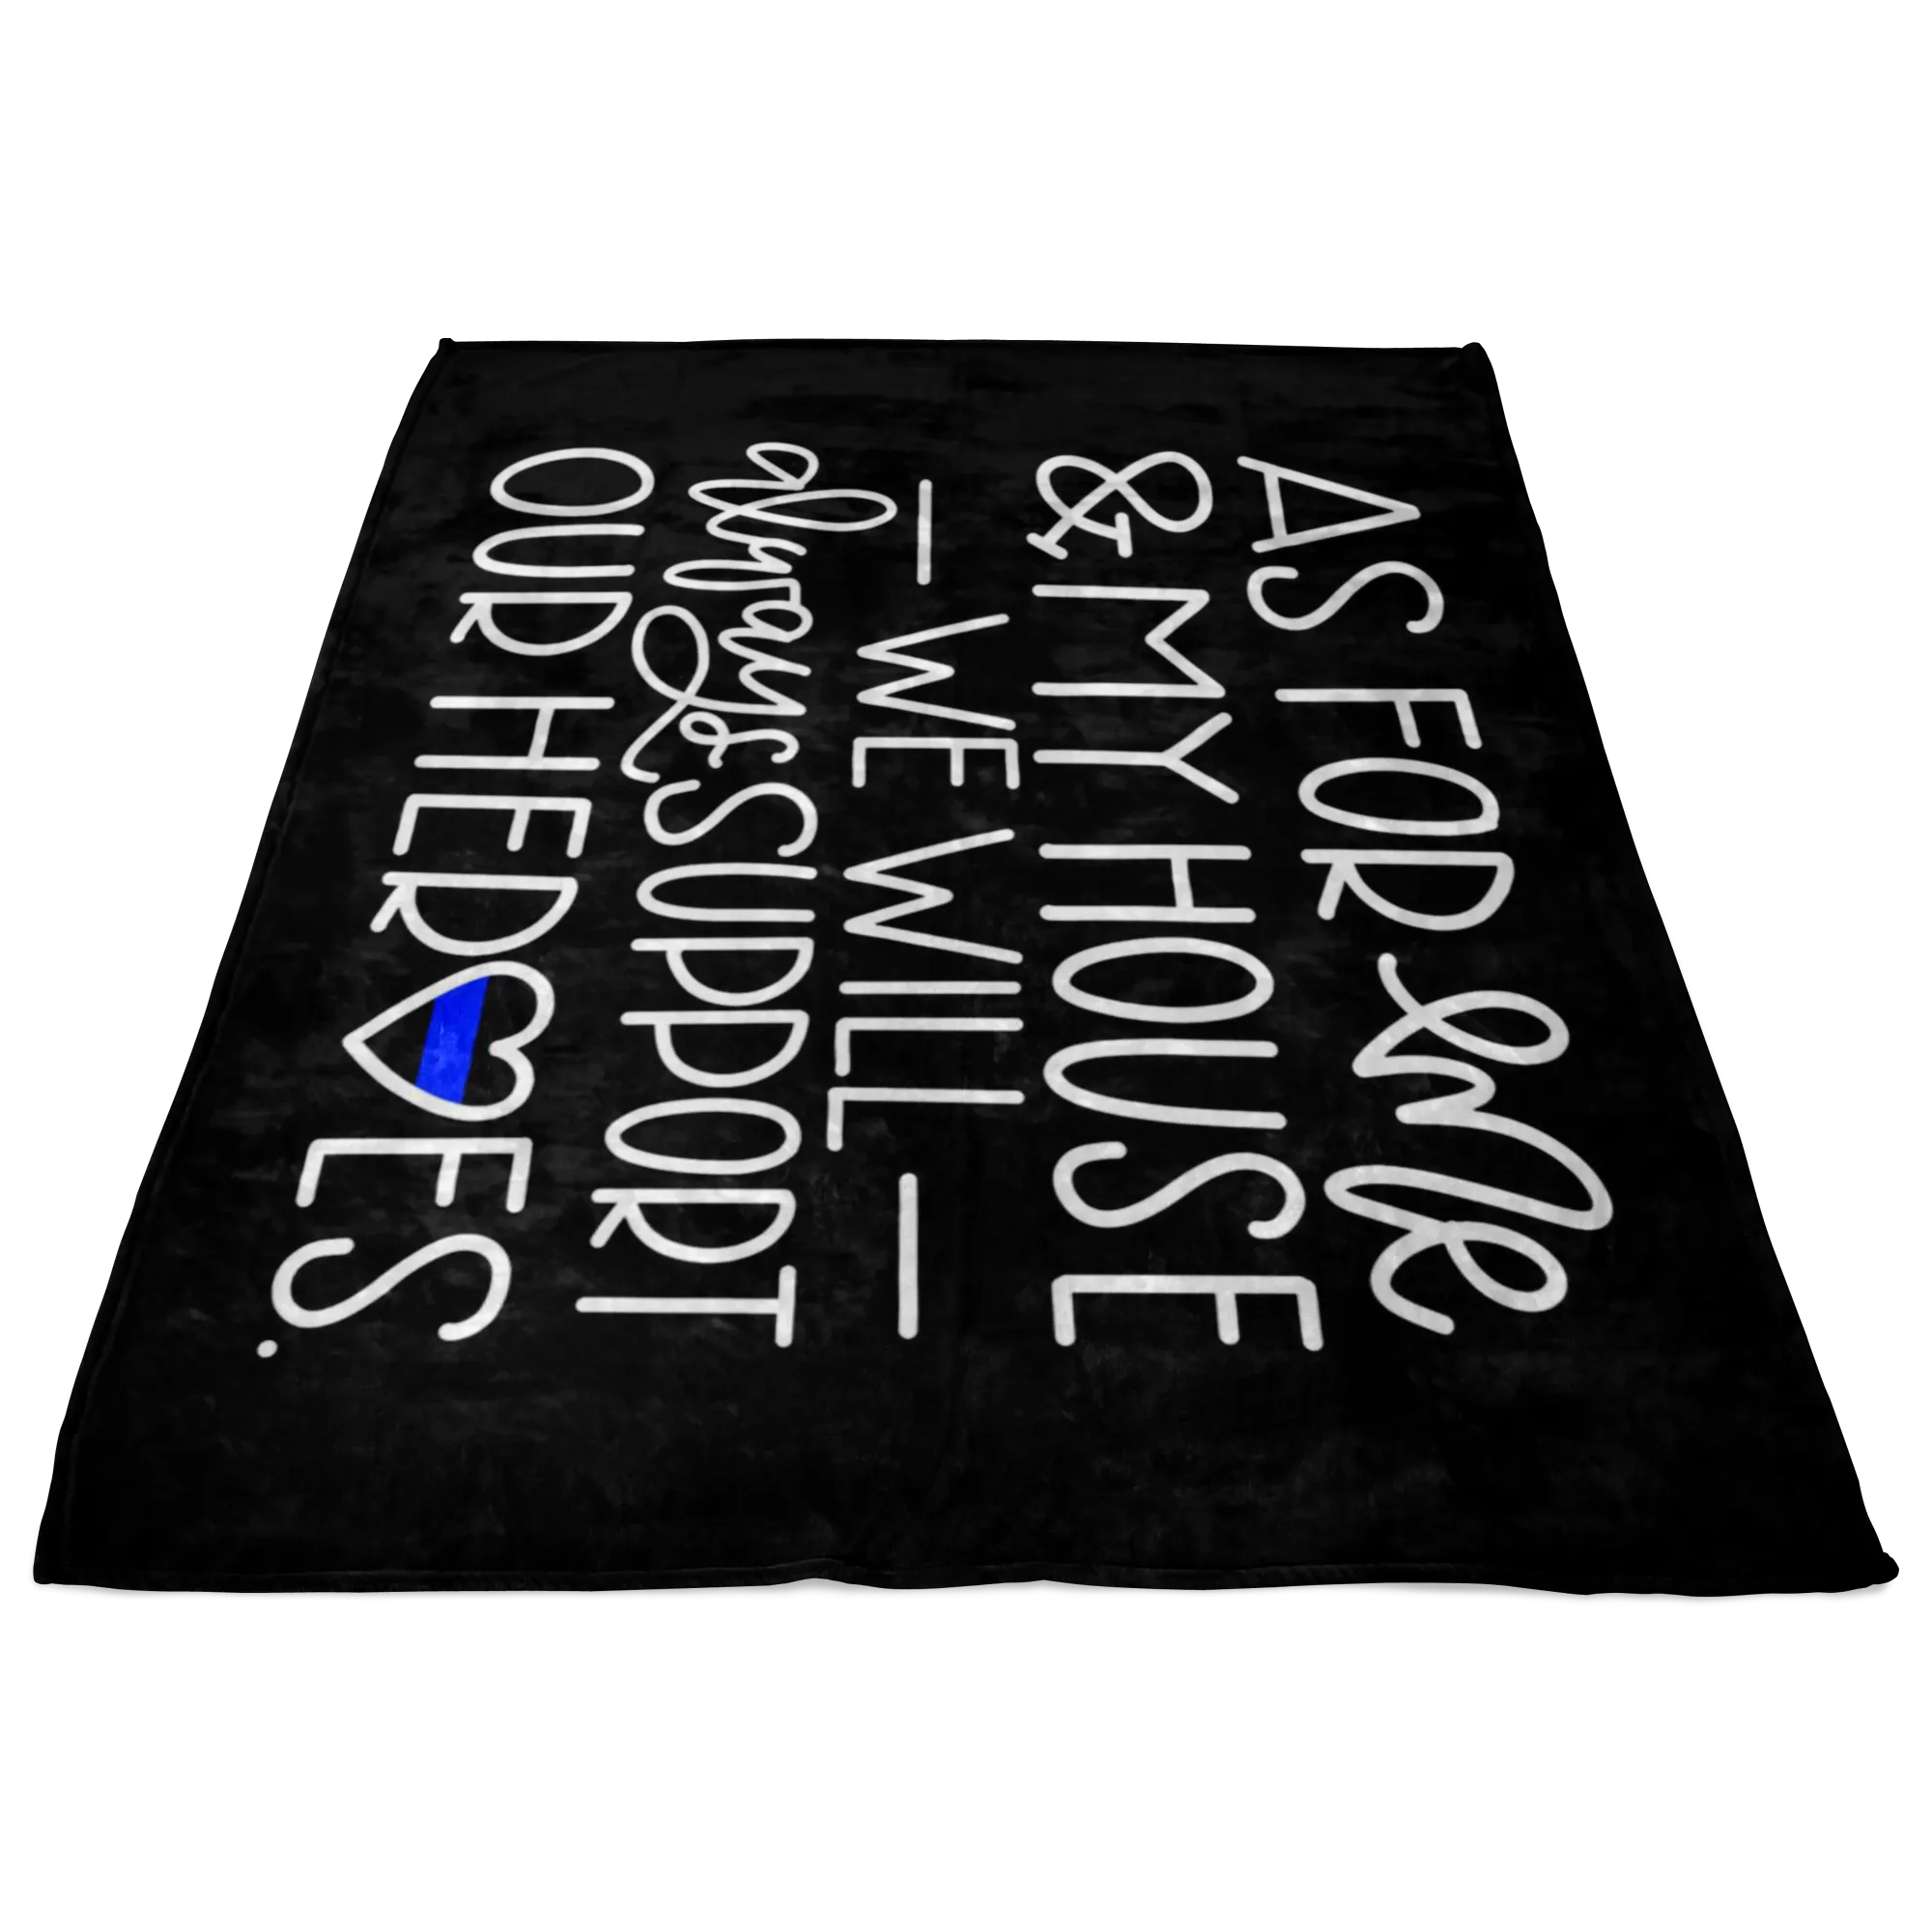 AS FOR Me
& MY HOUSE
— WE WILL —
always SUPPORT
OUR HER♡ES.